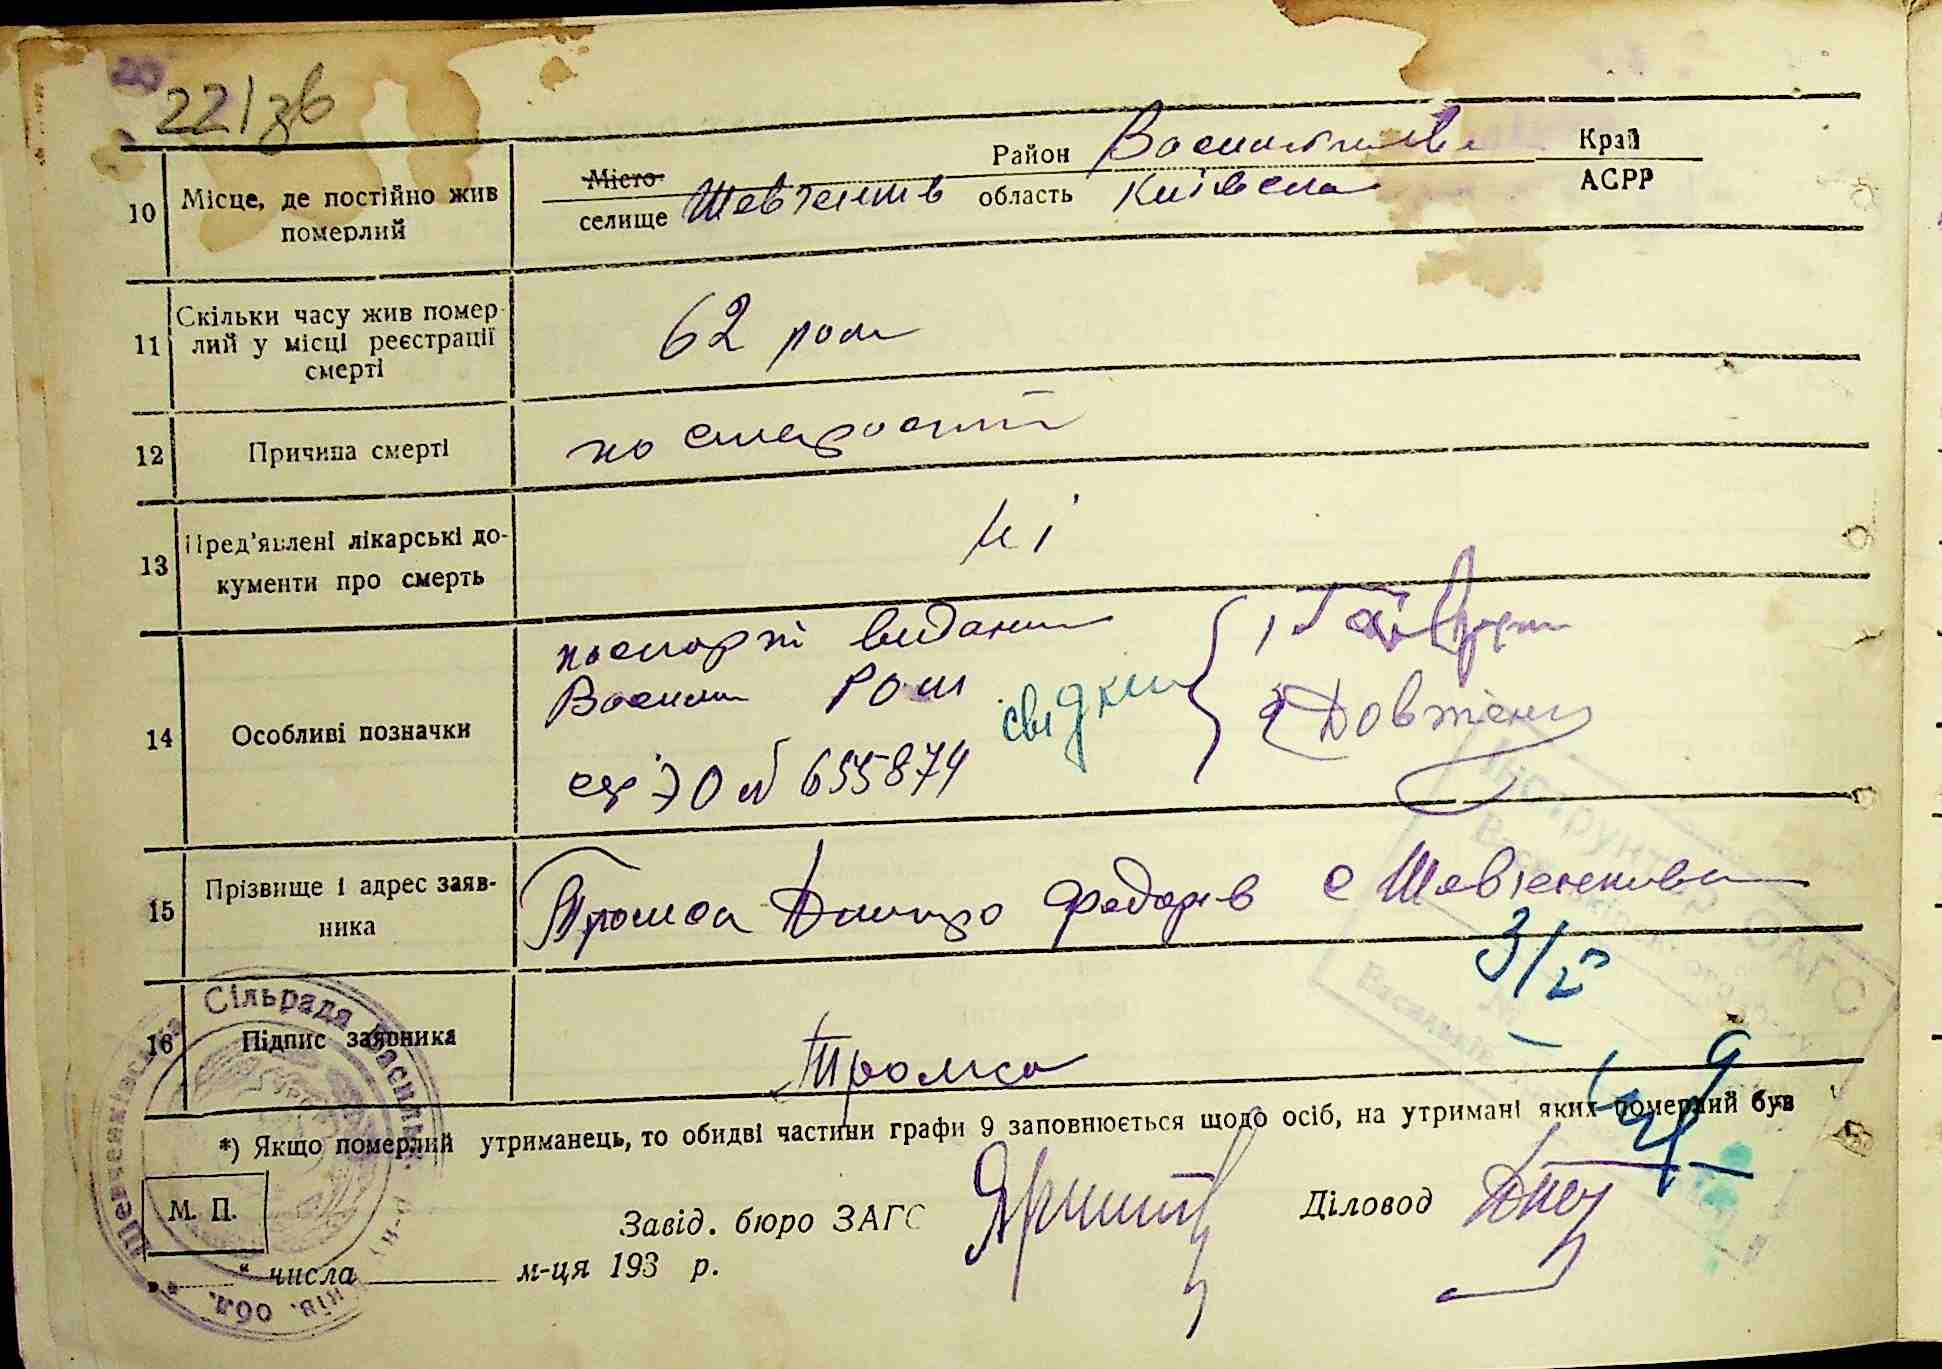 22/зв
10 Місце, де постійно жив померлий
Місто селище Шевченків Район Васильківс область Київська Край АСРР
11 Скільки часу жив помер-
лий у місці реєстрації
смерті
62 роки
12 Причина смерті
по старости
13 Пред'явлені лікарські до-
кументи про смерть
ні
14 Особливі позначки
паспорт виданий
Васильк РОМ
сер ЭО № 655874
свідки
1
2 Довженко
15 Прізвище і адрес заяв-
ника
Дмитро Федорів с Шевченкова
3/
16 Підпис заявника
*) Якщо померлий утриманець, то обидві частини графи 9 заповнюється щодо осіб, на утримані яких померлий був
М. П.
Завід. бюро ЗАГС
Діловод
„ “ числа м-ця 193 р.
Шевченківська Сільрада Васильк. р-ну Київ. обл.
Інструктор ОАГС